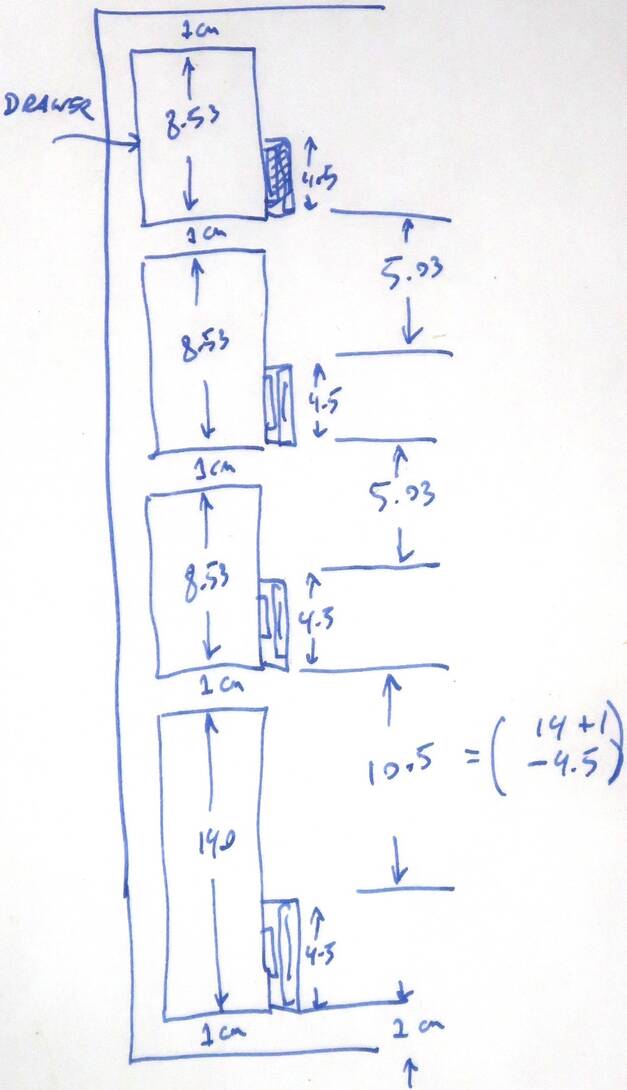 1 cm
DRAWER
8.53
4.5
1 cm
5.03
8.53
4.5
1 cm
5.03
8.53
4.5
1 cm
10.5 = (14 + 1
- 4.5)
14.0
4.5
1 cm
1 cm